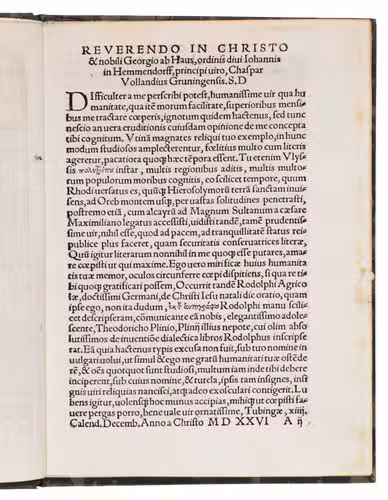 REVERENDO IN CHRISTO
& nobili Georgio ab Haus, ordinis diui Iohannis
in Hemmendorff, principi uiro, Chaspar
Vollandius Gruningensis. S. D
DIfficulter a me perscribi potest, humanissime uir qua hu
manitate, qua itē morum facilitate, superioribus mensi
bus me tractare cœperis, ignotum quidem hactenus, sed tunc
nescio an uera eruditionis cuiusdam opinione de me concepta
tibi cognitum. Vinca magnates reliqui tuo exemplo, in hunc
modum studiosos amplecterentur, fœlitius multo cum literis
ageretur, pacatiora quoq; hæc tēpora essent. Tu etenim Vlys
sis instar, multis regionibus aditis, multis multo
rum populorum moribus cognitis, eo scilicet tempore, quum
Rhodi uersatus es, quūq; Hierosolymorū terrā sanctam inuis
ens, ad Oreb montem usq;, per uastas solitudines penetrasti,
postremo etiā, cum alcayrū ad Magnum Sultanum a cæsare
Maximiliano legatus accessisti, uidisti tandē, tamē prudentis
sime uir, nihil esse, quod ad pacem, ad tranquillitatē status rei
publice plus faceret, quam securitatis conseruatrices literæ,
Quā igitur literarum nonnihil in me quoq; esse putares, ama
re cœpisti ut qui maxime. Ego uero mirificæ huius humanita
tis tuæ memor, oculos circunferre cœpi dispitiens, si qua re ti
bi quoq; gratificari possem, Occurrit tandē Rodolphi Agrico
læ, doctissimi Germani, de Christi Iesu natali die oratio, quam
ipse ego, non ita dudum, Rodolphi manu scili
cet descripseram, communicante eā nobis, elegantissimo adole
scente, Theodoricho Plinio, Plinij illius nepote, cui olim abso
lutissimos de inuentiōe dialectica libros Rodolphus inscripse
rat. Eā quia hactenus typis excusa non fuit, sub tuo nomine in
uulgari uolui, ut simul & ego me gratū humanitati tuæ ostēde
rē, & oēs quotquot sunt studiosi, multum iam inde tibi debere
inciperent, sub cuius nomine, & tutela, ipsis tam insignes, insi
gnis uiri reliquias nancisci, atq; adeo exosculari contigerit. Lu
bens igitur, uolensq; hoc munus accipias, mihiq; ut cœpisti fa
uere pergas porro, bene uale uir ornatissime, Tubingæ, xiiij,
Calend. Decemb. Anno a Christo M D XXVI A ij